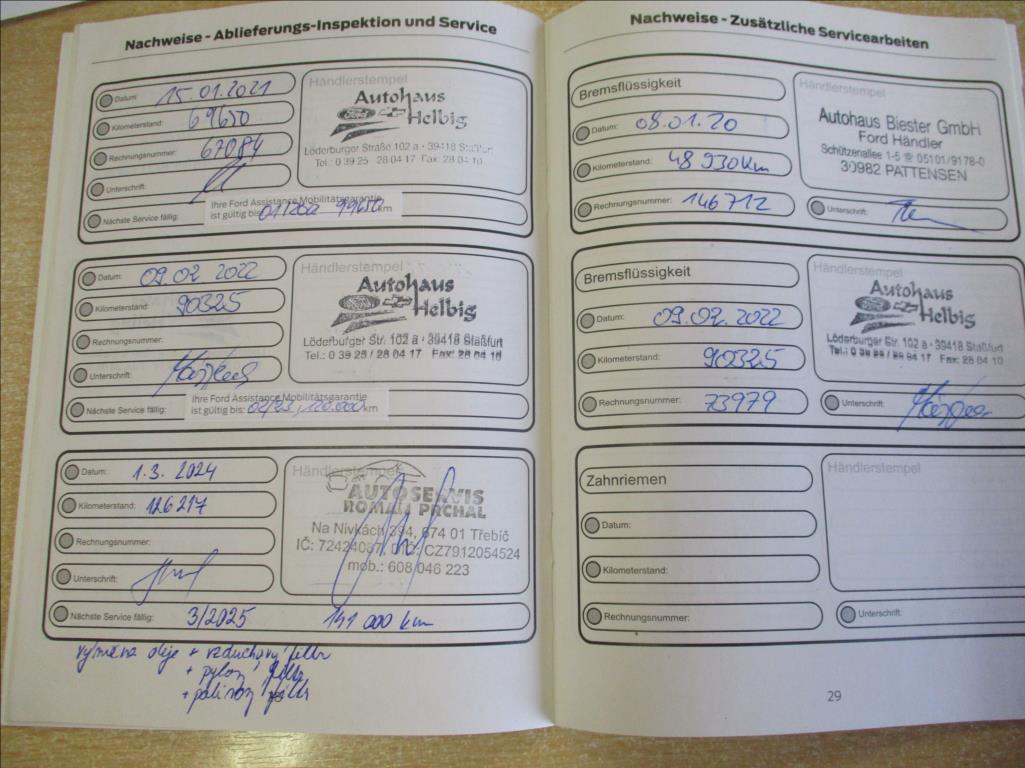 Nachweise - Ablieferungs-Inspektion und Service
Datum: 15.01.2021
Kilometerstand: 69650
Rechnungsnummer: 67084
Unterschrift:
Nächste Service fällig: Ihre Ford Assistance Mobilitätsgarantie
ist gültig bis: 01/2022 99650 km
Händlerstempel
Autohaus
Ford
Helbig
Löderburger Straße 102 a - 39418 Staßfurt
Tel.: 0 39 25 28 04 17 Fax 28 04 10
Datum: 09.02.2022
Kilometerstand: 90325
Rechnungsnummer:
Unterschrift:
Nächste Service fällig: Ihre Ford Assistance Mobilitätsgarantie
ist gültig bis: 02/23, 120.000 km
Händlerstempel
Autohaus
Helbig
Löderburger Str. 102 a · 39418 Staßfurt
Tel.: 0 39 25 / 28 04 17 Fax: 28 04 10
Datum: 1.3. 2024
Kilometerstand: 126217
Rechnungsnummer:
Unterschrift:
Nächste Service fällig: 3/2025 141 000 km
Händlerstempel
AUTOSERVIS
ROMAN PRCHAL
Na Nivkách 394, 674 01 Třebíč
IČ: 72424087, DIČ: CZ7912054524
mob.: 608 046 223
výměna oleje + vzduchový filtr
+ pylový filtr
+ palivový filtr
Nachweise - Zusätzliche Servicearbeiten
Bremsflüssigkeit
Datum: 08.01.20
Kilometerstand: 48 930 km
Rechnungsnummer: 146712
Händlerstempel
Autohaus Biester GmbH
Ford Händler
Schützenallee 1-5 ☎ 05101/9178-0
30982 PATTENSEN
Unterschrift:
Bremsflüssigkeit
Datum: 09.02.2022
Kilometerstand: 90325
Rechnungsnummer: 73979
Händlerstempel
Autohaus
Helbig
Löderburger Str. 102 a · 39418 Staßfurt
Tel.: 0 39 25 / 28 04 17 Fax: 28 04 10
Unterschrift:
Zahnriemen
Datum:
Kilometerstand:
Rechnungsnummer:
Händlerstempel
Unterschrift:
29